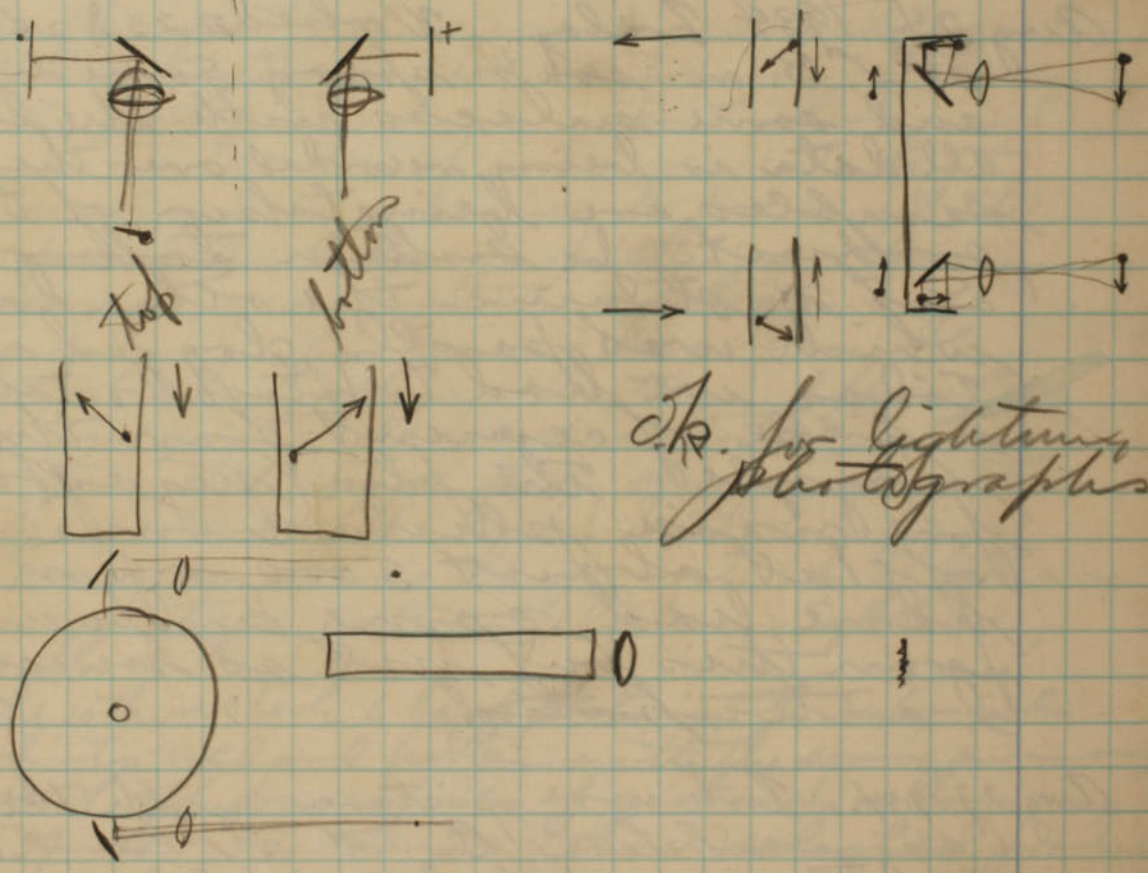 +
top
bottom
O.K. for lightning
photographs